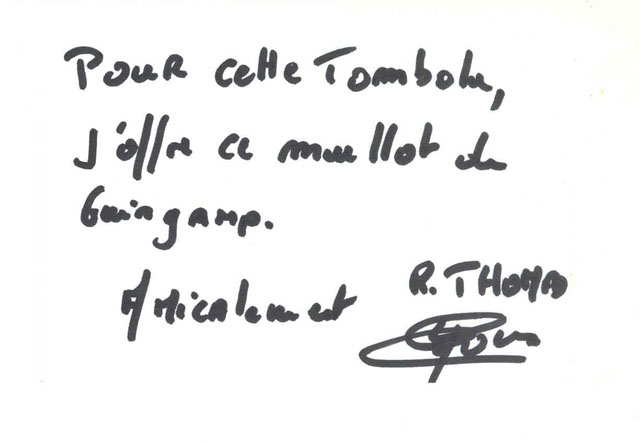 Pour cette Tombola,
j'offre ce maillot de
Guingamp.
Amicalement R. THOMAS